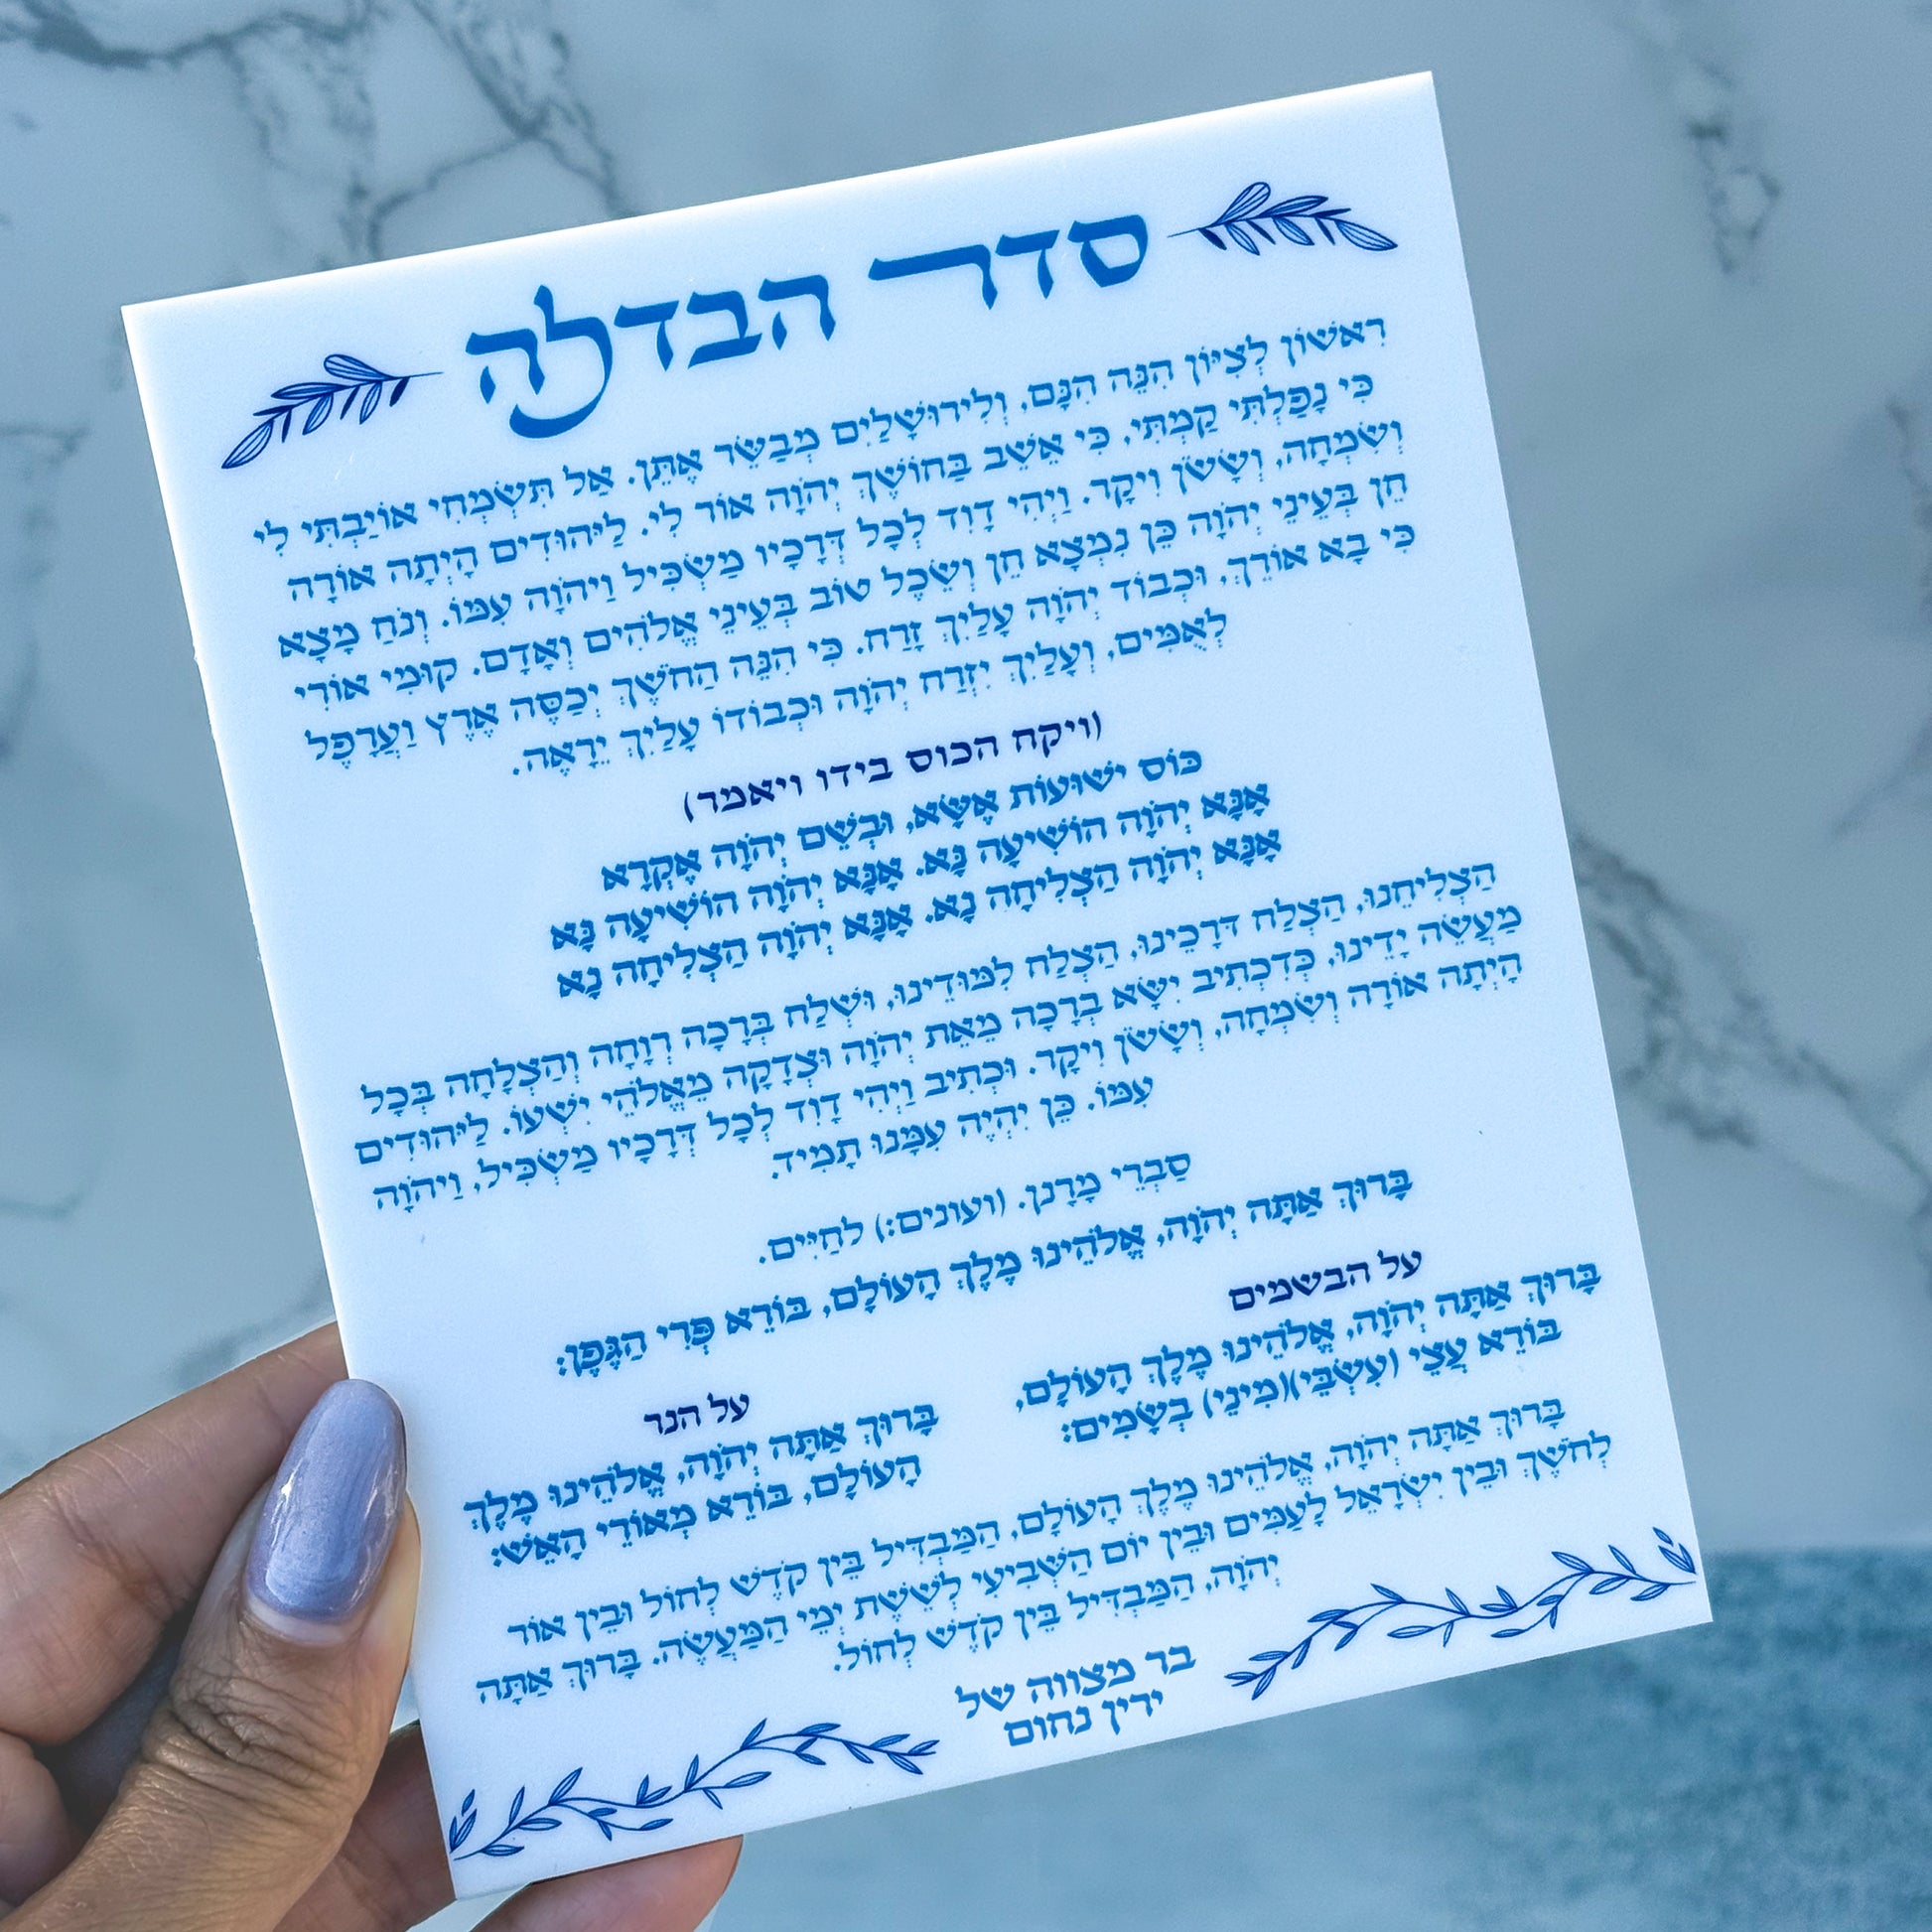 סדר הבדלה
רִאשׁוֹן לְצִיּוֹן הִנֵּה הִנָּם, וְלִירוּשָׁלַיִם מְבַשֵּׂר אֶתֵּן. אַל תִּשְׂמְחִי אוֹיַבְתִּי לִי
כִּי נָפַלְתִּי קַמְתִּי, כִּי אֵשֵׁב בַּחוֹשֶׁךְ יְהֹוָה אוֹר לִי. לַיְּהוּדִים הָיְתָה אוֹרָה
וְשִׂמְחָה, וְשָׂשֹׂן וִיקָר. וַיְהִי דָוִד לְכָל דְּרָכָיו מַשְׂכִּיל וַיהֹוָה עִמּוֹ. וְנֹחַ מָצָא
חֵן בְּעֵינֵי יְהֹוָה כֵּן נִמְצָא חֵן וְשֵׂכֶל טוֹב בְּעֵינֵי אֱלֹהִים וְאָדָם. קוּמִי אוֹרִי
כִּי בָא אוֹרֵךְ, וּכְבוֹד יְהֹוָה עָלַיִךְ זָרַח. כִּי הִנֵּה הַחֹשֶׁךְ יְכַסֶּה אֶרֶץ וַעֲרָפֶל
לְאֻמִּים, וְעָלַיִךְ יִזְרַח יְהֹוָה וּכְבוֹדוֹ עָלַיִךְ יֵרָאֶה.
(ויקח הכוס בידו ויאמר)
כּוֹס יְשׁוּעוֹת אֶשָּׂא, וּבְשֵׁם יְהֹוָה אֶקְרָא
אָנָּא יְהֹוָה הוֹשִׁיעָה נָּא. אָנָּא יְהֹוָה הוֹשִׁיעָה נָּא
אָנָּא יְהֹוָה הַצְלִיחָה נָא. אָנָּא יְהֹוָה הַצְלִיחָה נָא
הַצְלִיחֵנוּ, הַצְלַח דְּרָכֵינוּ, הַצְלַח לִמּוּדֵינוּ, וּשְׁלַח בְּרָכָה רְוָחָה וְהַצְלָחָה בְּכָל
מַעֲשֵׂה יָדֵינוּ, כְּדִכְתִיב יִשָּׂא בְרָכָה מֵאֵת יְהֹוָה וּצְדָקָה מֵאֱלֹהֵי יִשְׁעוֹ. לַיְּהוּדִים
הָיְתָה אוֹרָה וְשִׂמְחָה, וְשָׂשֹׂן וִיקָר. וּכְתִיב וַיְהִי דָוִד לְכָל דְּרָכָיו מַשְׂכִּיל, וַיהֹוָה
עִמּוֹ. כֵּן יִהְיֶה עִמָּנוּ תָּמִיד.
סַבְרִי מָרָנָן. (ועונים:) לְחַיִּים.
בָּרוּךְ אַתָּה יְהֹוָה, אֱלֹהֵינוּ מֶלֶךְ הָעוֹלָם, בּוֹרֵא פְּרִי הַגֶּפֶן:
על הבשמים
בָּרוּךְ אַתָּה יְהֹוָה, אֱלֹהֵינוּ מֶלֶךְ הָעוֹלָם,
בּוֹרֵא עֲצֵי (עִשְׂבֵּי)(מִינֵי) בְשָׂמִים:
על הנר
בָּרוּךְ אַתָּה יְהֹוָה, אֱלֹהֵינוּ מֶלֶךְ
הָעוֹלָם, בּוֹרֵא מְאוֹרֵי הָאֵשׁ:
בָּרוּךְ אַתָּה יְהֹוָה, אֱלֹהֵינוּ מֶלֶךְ הָעוֹלָם, הַמַּבְדִּיל בֵּין קֹדֶשׁ לְחוֹל וּבֵין אוֹר
לְחֹשֶׁךְ וּבֵין יִשְׂרָאֵל לָעַמִּים וּבֵין יוֹם הַשְּׁבִיעִי לְשֵׁשֶׁת יְמֵי הַמַּעֲשֶׂה. בָּרוּךְ אַתָּה
יְהֹוָה, הַמַּבְדִּיל בֵּין קֹדֶשׁ לְחוֹל.
בר מצווה של
ידין נחום